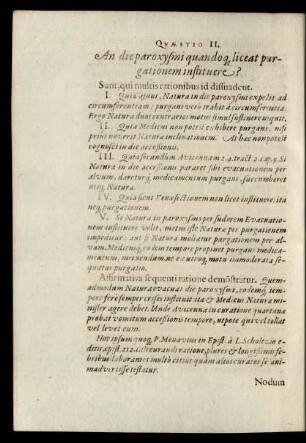 QVÆSTIO II.
An die paroxysmi quandoq; liceat pur-
gationem instituere?
Sunt, qui multis rationibus id dissuadent.
I. Quia ajunt, Natura in die paroxysmi expellit ad
circumferentiam: purgans verò trahit à circumferentia.
Ergo Natura duos contrarios motus simul sustinere nequit.
II. Quia Medicus non potest exhibere purgans, nisi
prius noverit Naturæ inclinationem. At hæc non potest
cognosci in die accessionis.
III. Quia secundum Avicennam
Natura in die accessionis pararet sibi evacuationem per
alvum, dareturq; medicamentum purgans, succumberet
utiq; Natura.
IV. Quia sicut Venæ sectionem non licet instituere; ita
neq; purgationem.
V. Si Natura in paroxysmo per sudorem Evacuatio-
nem instituere velit, motus iste Naturæ per purgationem
impeditur: aut si Natura moliatur purgationem per al-
vum, Medicusq; eodem tempore propinet purgans medica-
mentum, metuendum, ne ex utroq; motu immoderata se-
quatur purgatio.
Affirmativa sequenti ratione demõstratur. Quem-
admodum Natura evacuat die paroxysmi, eodemq; tem-
pore fere semper crises instituit ita & Medicus Naturæ mi-
nister agere debet. Unde Avicenna in curatione quartanæ
probat vomitum accessionis tempore, utpote qui vel tollat
vel levet eum.
Hoc ipsum quoq; P. Monavius in Epist. à L. Scholtzio e-
ditis, epist. plures & longissimis fe-
bribus laborantes multò citius quàm alios curatos se ani-
madvertisse testatur.
Nodum